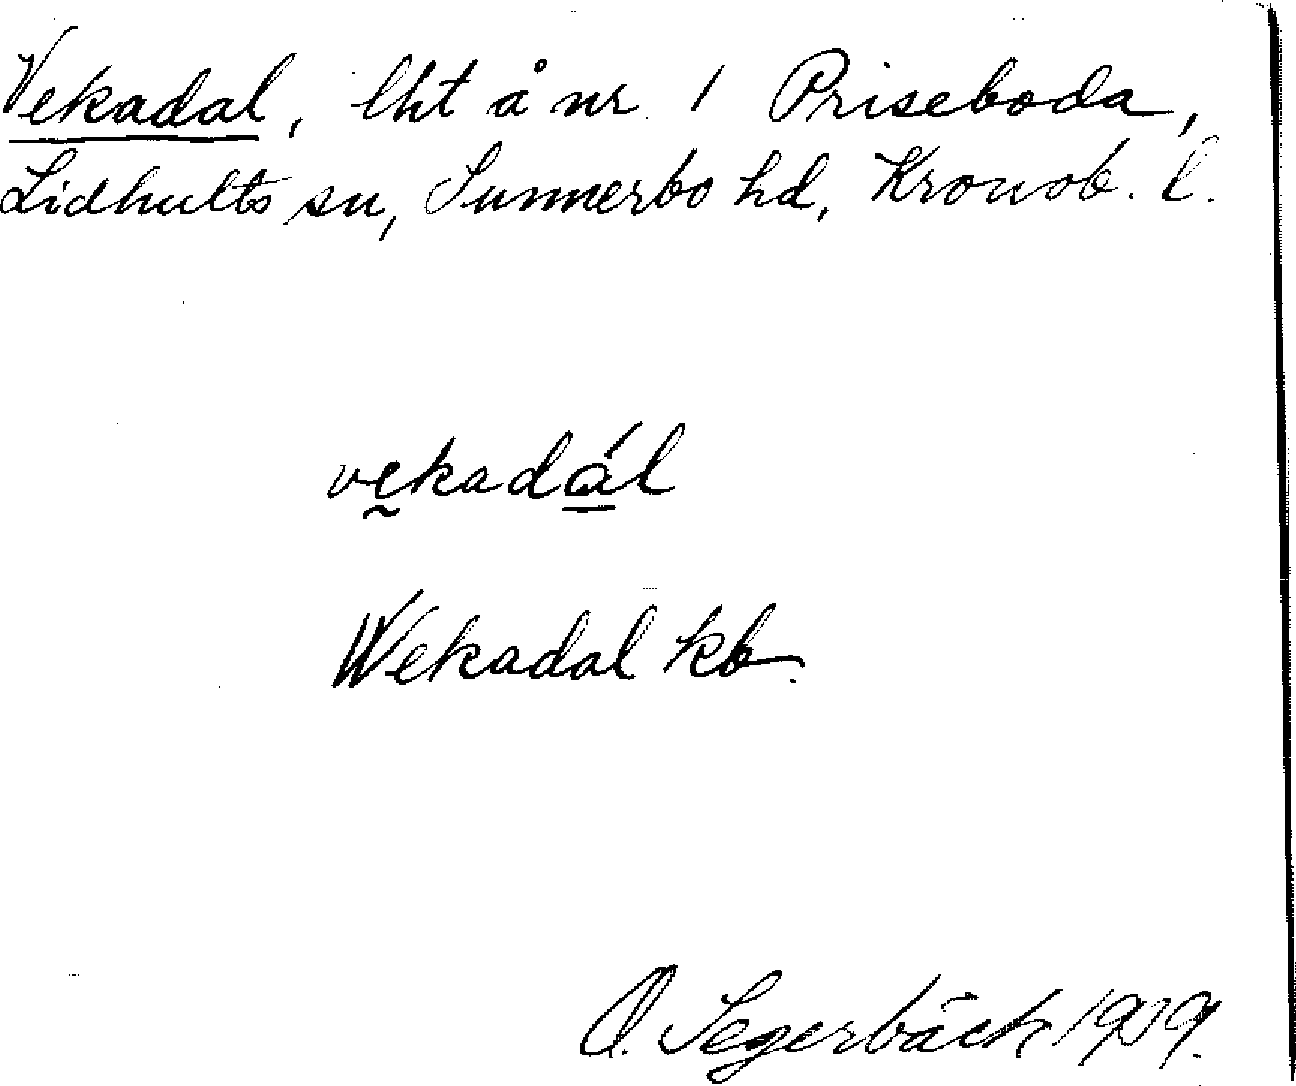 Vekadal, lht å nr 1 Priseboda,
Lidhults sn, Sunnerbo hd, Kronob. l.
vekadál
Wekadal kb.
O. Segerbäck 1919.